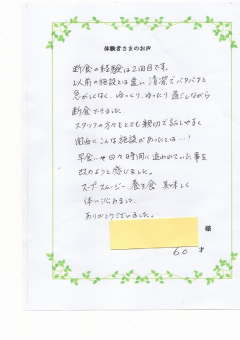 体験者さまのお声
断食の経験は2回目です。
以前の施設とは違い、清潔でバタバタと
急がしくなく、ゆっくり、ゆったり過ごしながら
断食できました。
スタッフの方々もとても親切で話しやすく
関西にこんな施設があったとは…!
早食いや日々時間に追われていた事を
改めようと感じました。
スープ、スムージー、養生食 美味しく
体に沁みました。
ありがとうございました。
様
60 才